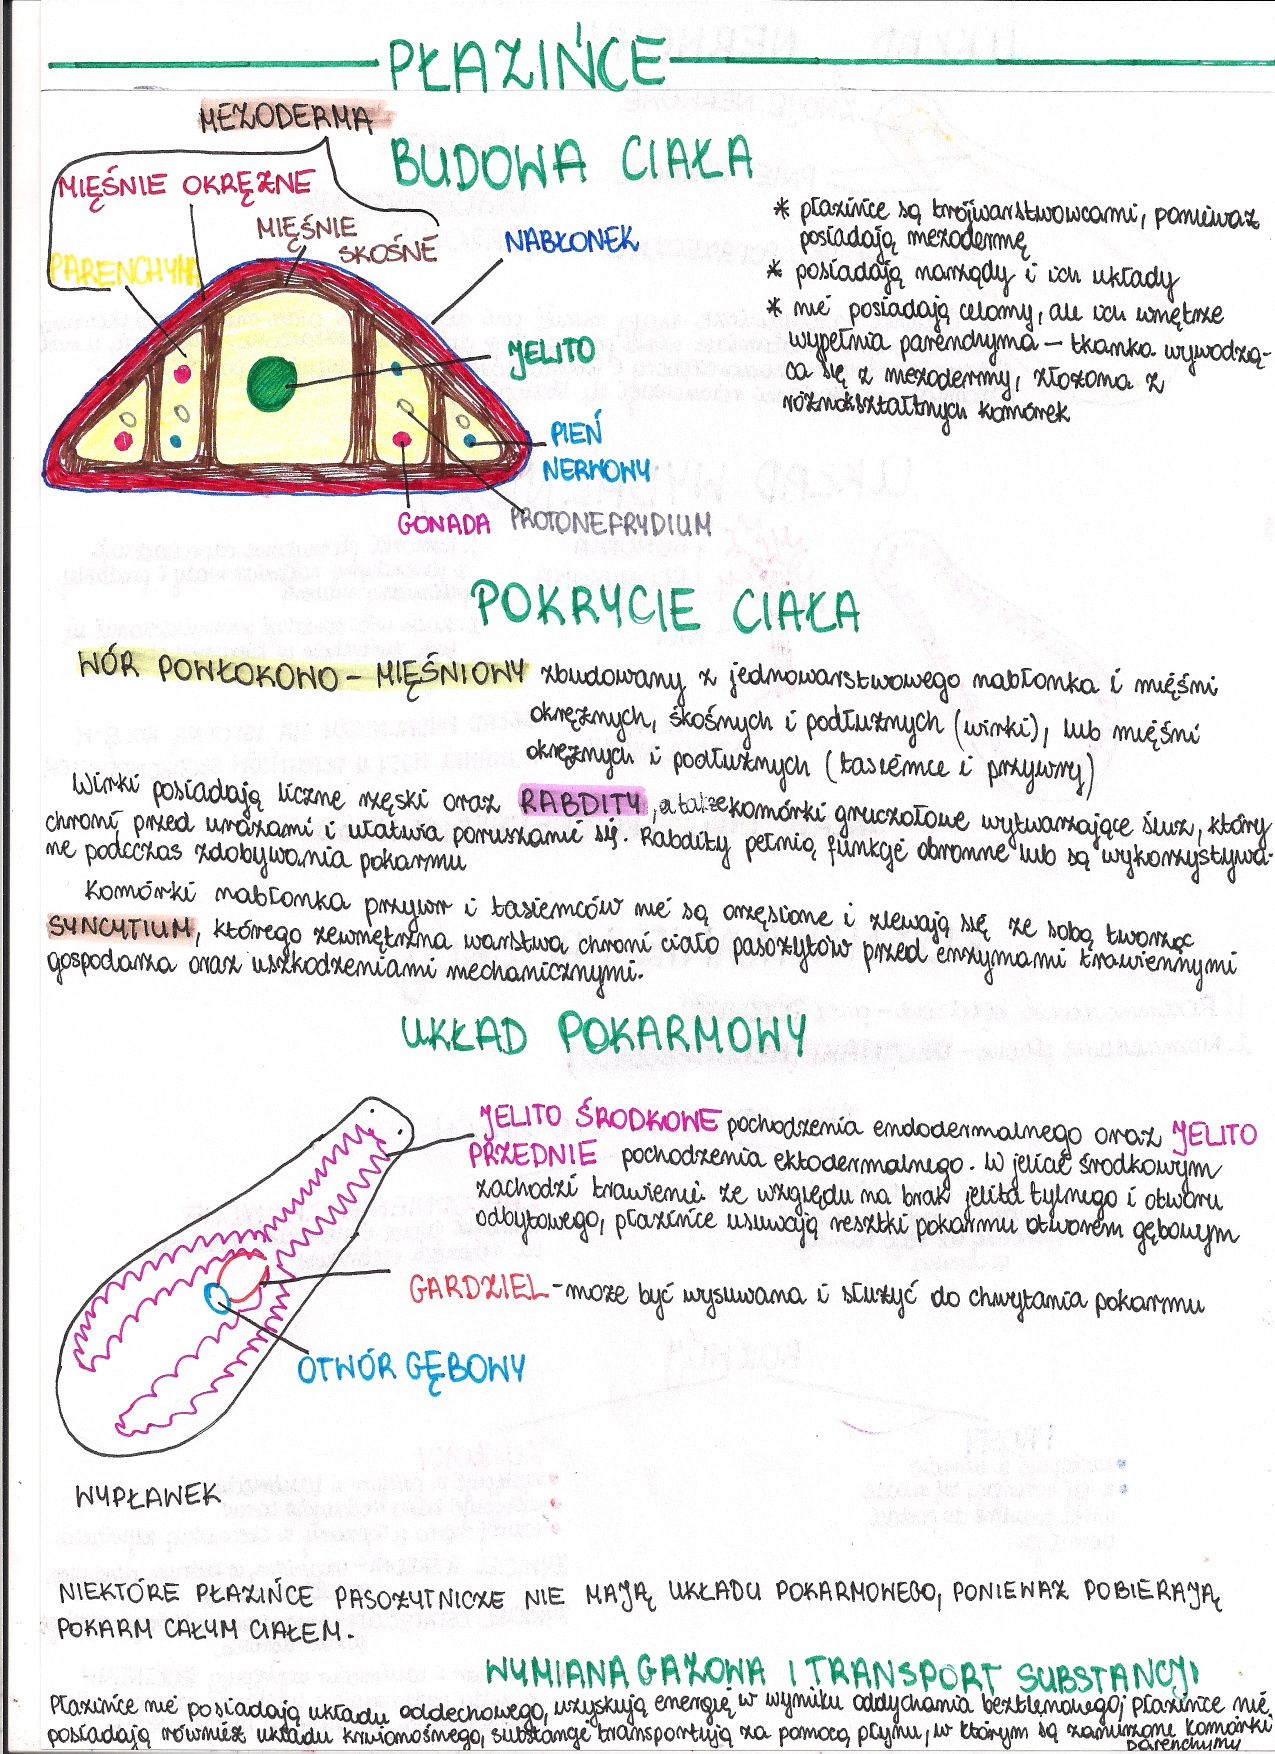 PŁAZIŃCE
MEZODERMA
BUDOWA CIAŁA
MIĘŚNIE OKRĘŻNE
MIĘŚNIE
SKOŚNE
NABŁONEK
PARENCHYMA
JELITO
PIEŃ
NERWOWY
GONADA
PROTONEFRYDIUM
* płazińce są trójwarstwowcami, ponieważ
posiadają mezodermę
* posiadają narządy i ich układy
* nie posiadają celomy, ale ich wnętrze
wypełnia parenchyma – tkanka wywodzą-
ca się z mezodermy, złożona z
różnokształtnych komórek
POKRYCIE CIAŁA
WÓR POWŁOKOWO – MIĘŚNIOWY zbudowany z jednowarstwowego nabłonka i mięśni
okrężnych, skośnych i podłużnych (wirki), lub mięśni
okrężnych i podłużnych (tasiemce i przywry)
Wirki posiadają liczne rzęski oraz RABDITY, a także komórki gruczołowe wytwarzające śluz, który
chroni przed urazami i ułatwia poruszanie się. Rabdity pełnią funkcje obronne lub są wykorzystywa-
ne podczas zdobywania pokarmu
Komórki nabłonka przywr i tasiemców nie są orzęsione i zlewają się ze sobą tworząc
SYNCYTIUM, którego zewnętrzna warstwa chroni ciało pasożytów przed enzymami trawiennymi
gospodarza oraz uszkodzeniami mechanicznymi.
UKŁAD POKARMOWY
JELITO ŚRODKOWE pochodzenia endodermalnego oraz JELITO
PRZEDNIE pochodzenia ektodermalnego. W jelicie środkowym
zachodzi trawienie. ze względu na brak jelita tylnego i otworu
odbytowego, płazińce usuwają resztki pokarmu otworem gębowym
GARDZIEL – może być wysuwana i służyć do chwytania pokarmu
OTWÓR GĘBOWY
WYPŁAWEK
NIEKTÓRE PŁAZIŃCE PASOŻYTNICZE NIE MAJĄ UKŁADU POKARMOWEGO, PONIEWAŻ POBIERAJĄ
POKARM CAŁYM CIAŁEM.
WYMIANA GAZOWA I TRANSPORT SUBSTANCJI
Płazińce nie posiadają układu oddechowego, uzyskują energię w wyniku oddychania beztlenowego, płazińce nie
posiadają również układu krwionośnego, substancje transportują za pomocą płynu, w którym są zanurzone komórki
parenchymy